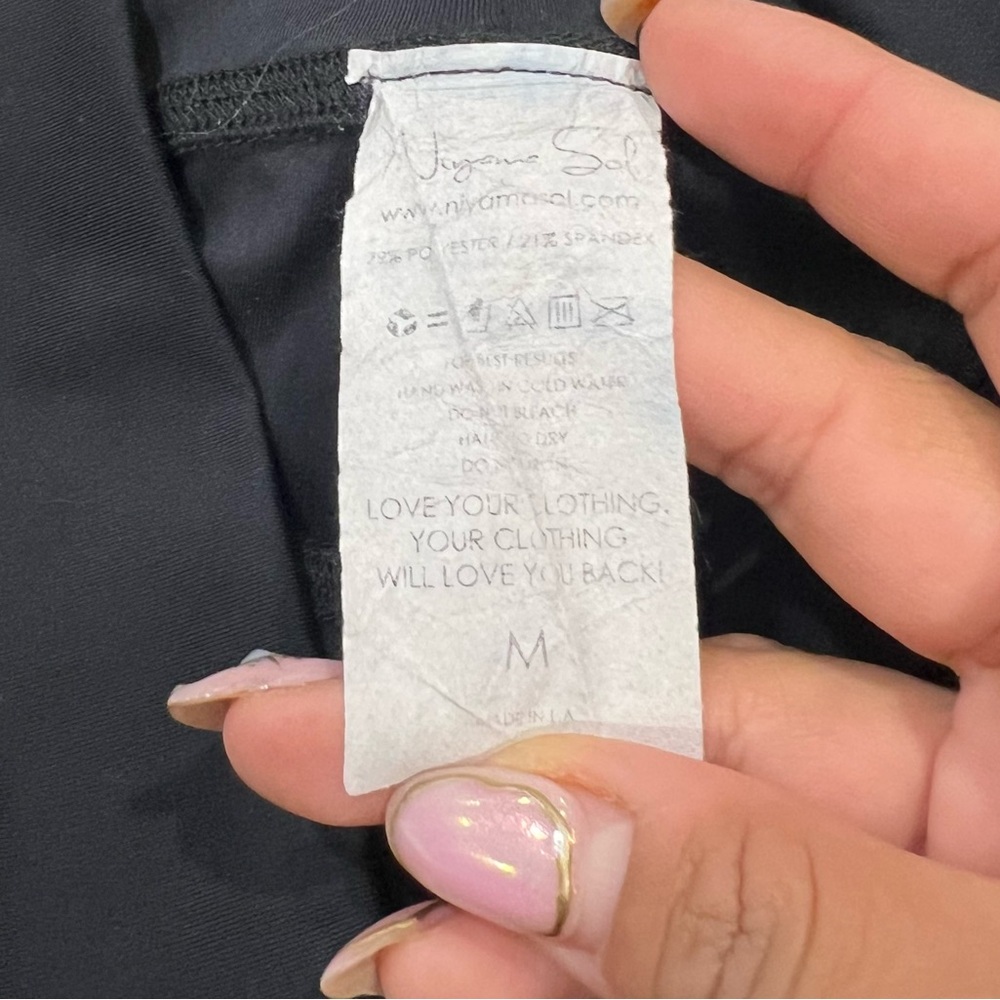 Niyama Sol
www.niyamasol.com
79% POLYESTER / 21% SPANDEX
=
FOR BEST RESULTS
HAND WASH IN COLD WATER
DO NOT BLEACH
HANG TO DRY
DO NOT IRON
LOVE YOUR CLOTHING.
YOUR CLOTHING
WILL LOVE YOU BACK!
M
MADE IN LA